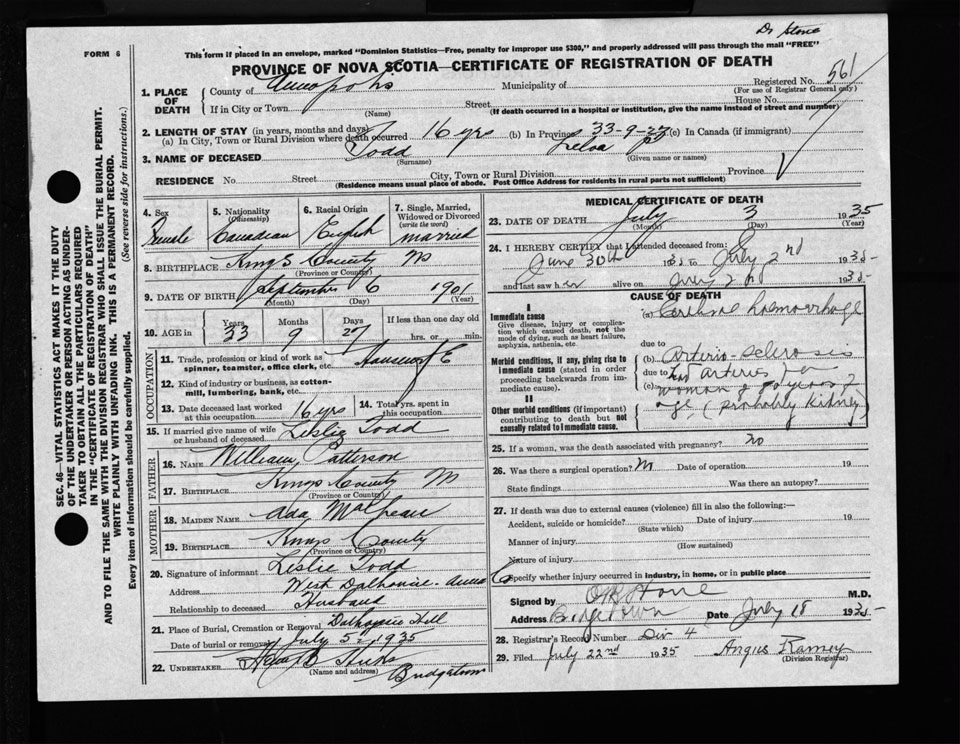 Dr Stone
FORM 6
This form if placed in an envelope, marked "Dominion Statistics—Free, penalty for improper use $300," and properly addressed will pass through the mail "FREE"
PROVINCE OF NOVA SCOTIA—CERTIFICATE OF REGISTRATION OF DEATH
1. PLACE OF DEATH
County of Annapolis Municipality of Registered No. 561
(For use of Registrar General only)
If in City or Town Street House No.
(Name) (If death occurred in a hospital or institution, give the name instead of street and number)
2. LENGTH OF STAY (in years, months and days)
(a) In City, Town or Rural Division where death occurred 16 yrs (b) In Province 33-9-27 (c) In Canada (if immigrant)
3. NAME OF DECEASED Todd P
(Surname) (Given name or names)
RESIDENCE No. Street City, Town or Rural Division Province
(Residence means usual place of abode. Post Office Address for residents in rural parts not sufficient)
4. Sex 5. Nationality (Citizenship) 6. Racial Origin 7. Single, Married, Widowed or Divorced (write the word)
Female Canadian English married
8. BIRTHPLACE Kings County NS
(Province or Country)
9. DATE OF BIRTH September 6 1901
(Month) (Day) (Year)
10. AGE in Years Months Days If less than one day old
33 9 27 hrs. or min.
OCCUPATION
11. Trade, profession or kind of work as spinner, teamster, office clerk, etc. Housewife
12. Kind of industry or business, as cotton-mill, lumbering, bank, etc.
13. Date deceased last worked at this occupation 16 yrs 14. Total yrs. spent in this occupation
15. If married give name of wife or husband of deceased Leslie Todd
FATHER
16. NAME William Patterson
17. BIRTHPLACE Kings County NS
(Province or Country)
MOTHER
18. MAIDEN NAME Ada
19. BIRTHPLACE Kings County
(Province or Country)
20. Signature of informant Leslie Todd
Address West Dalhousie - Anna
Relationship to deceased Husband
21. Place of Burial, Cremation or Removal Dalhousie Hill
Date of burial or removal July 5 - 1935
22. UNDERTAKER Hicks Bridgetown
(Name and address)
MEDICAL CERTIFICATE OF DEATH
23. DATE OF DEATH July 3 1935
(Month) (Day) (Year)
24. I HEREBY CERTIFY that I attended deceased from:
June 30th 1935 to July 2nd 1935
and last saw her alive on July 2nd 1935
CAUSE OF DEATH
I
Immediate cause (a) Cerebral haemorrhage
Give disease, injury or complication which caused death, not the mode of dying, such as heart failure, asphyxia, asthenia, etc.
due to
(b) Arterio-sclerosis
Morbid conditions, if any, giving rise to immediate cause (stated in order proceeding backwards from immediate cause).
due to
(c)
arteries for
woman of years of
age (probably kidney
II
Other morbid conditions (if important) contributing to death but not causally related to immediate cause.
25. If a woman, was the death associated with pregnancy? no
26. Was there a surgical operation? No Date of operation 19
State findings Was there an autopsy?
27. If death was due to external causes (violence) fill in also the following:—
Accident, suicide or homicide? Date of injury 19
(State which)
Manner of injury
(How sustained)
Nature of injury
Specify whether injury occurred in industry, in home, or in public place
Signed by Stone M.D.
Address Bridgetown Date July 18 1935
28. Registrar's Record Number Div 4
29. Filed July 22nd 1935 Angus Ramey
(Division Registrar)
SEC. 46—VITAL STATISTICS ACT MAKES IT THE DUTY
OF THE UNDERTAKER OR PERSON ACTING AS UNDER-
TAKER TO OBTAIN ALL THE PARTICULARS REQUIRED
IN THE "CERTIFICATE OF REGISTRATION OF DEATH"
AND TO FILE THE SAME WITH THE DIVISION REGISTRAR WHO SHALL ISSUE THE BURIAL PERMIT.
WRITE PLAINLY WITH UNFADING INK. THIS IS A PERMANENT RECORD.
Every item of information should be carefully supplied. (See reverse side for instructions.)